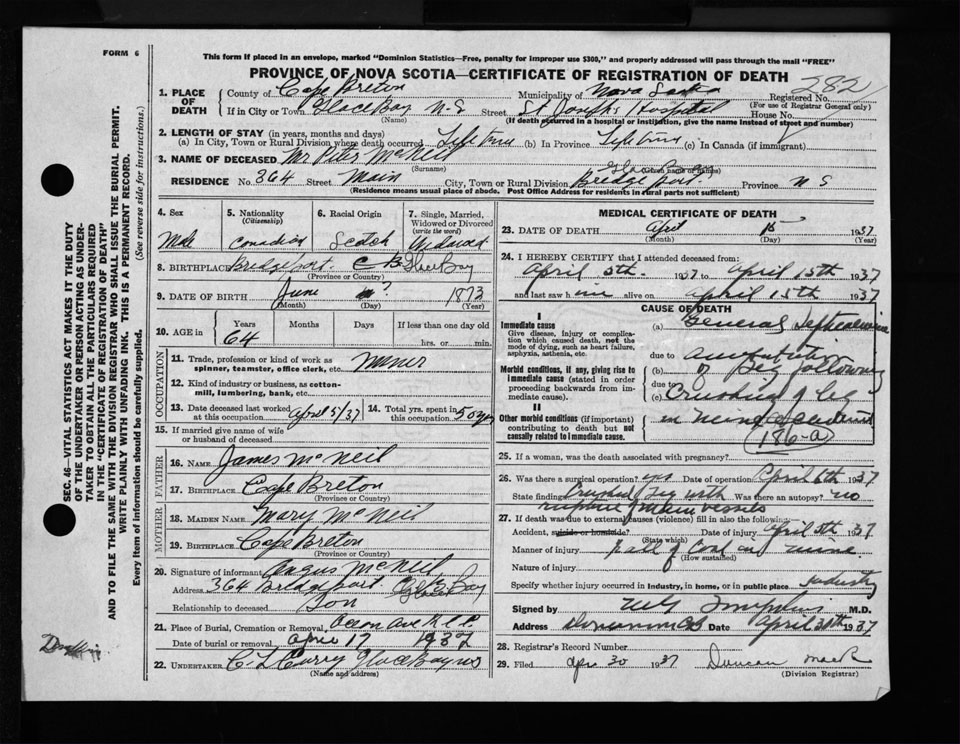 FORM 6
This form if placed in an envelope, marked "Dominion Statistics—Free, penalty for improper use $300," and properly addressed will pass through the mail "FREE"
PROVINCE OF NOVA SCOTIA—CERTIFICATE OF REGISTRATION OF DEATH
282
1. PLACE OF DEATH
County of Cape Breton Municipality of Nova Scotia Registered No.
(For use of Registrar General only)
If in City or Town Glace Bay N-S Street St Joseph's Hospital House No.
(Name) (If death occurred in a hospital or institution, give the name instead of street and number)
2. LENGTH OF STAY (in years, months and days)
(a) In City, Town or Rural Division where death occurred Lifetime (b) In Province Lifetime (c) In Canada (if immigrant)
3. NAME OF DECEASED Mr Peter McNeil
(Surname) (Given name or names)
RESIDENCE No. 364 Street Main City, Town or Rural Division Glace Bay Bridgeport Province N S
(Residence means usual place of abode. Post Office Address for Residents in rural parts not sufficient)
4. Sex
Male
5. Nationality (Citizenship)
Canadian
6. Racial Origin
Scotch
7. Single, Married, Widowed or Divorced (write the word)
Widowed
8. BIRTHPLACE Bridgeport C B Glace Bay
(Province or Country)
9. DATE OF BIRTH June ? 1873
(Month) (Day) (Year)
10. AGE in Years Months Days If less than one day old
64 hrs. or min.
OCCUPATION
11. Trade, profession or kind of work as spinner, teamster, office clerk, etc. Miner
12. Kind of industry or business, as cotton-mill, lumbering, bank, etc.
13. Date deceased last worked at this occupation April 5/37
14. Total yrs. spent in this occupation 50 yrs
15. If married give name of wife or husband of deceased
FATHER
16. NAME James McNeil
17. BIRTHPLACE Cape Breton
(Province or Country)
MOTHER
18. MAIDEN NAME Mary McNeil
19. BIRTHPLACE Cape Breton
(Province or Country)
20. Signature of informant Angus McNeil
Address 364 Bridgeport Glace Bay
Relationship to deceased Son
21. Place of Burial, Cremation or Removal Ocean Ave
Date of burial or removal April 17 1937
22. UNDERTAKER C L Curry Glace Bay NS
(Name and address)
MEDICAL CERTIFICATE OF DEATH
23. DATE OF DEATH April 15 1937
(Month) (Day) (Year)
24. I HEREBY CERTIFY that I attended deceased from:
April 5th. 1937 to April 15th 1937
and last saw him alive on April 15th 1937
CAUSE OF DEATH
I
Immediate cause
Give disease, injury or complication which caused death, not the mode of dying, such as heart failure, asphyxia, asthenia, etc.
Morbid conditions, if any, giving rise to immediate cause (stated in order proceeding backwards from immediate cause).
II
Other morbid conditions (important) contributing to death but not causally related to immediate cause.
(a) General Septicaemia
due to
(b) amputation of leg following
due to
(c) Crushing of leg
in mine accident
186-a
25. If a woman, was the death associated with pregnancy?
26. Was there a surgical operation? yes Date of operation April 6th 1937
State finding Crushed leg with Was there an autopsy? no
rupture of main vessels
27. If death was due to external causes (violence) fill in also the following:
Accident, suicide or homicide? Date of injury April 5th 1937
(State which)
Manner of injury Fall of Coal in mine.
(How sustained)
Nature of injury
Specify whether injury occurred in industry, in home, or in public place industry
Signed by M.D.
Address Dominion CB Date April 30th 1937
28. Registrar's Record Number
29. Filed Apr 30 1937 Duncan
(Division Registrar)
SEC. 46—VITAL STATISTICS ACT MAKES IT THE DUTY
OF THE UNDERTAKER OR PERSON ACTING AS UNDERTAKER TO OBTAIN ALL THE PARTICULARS REQUIRED
IN THE "CERTIFICATE OF REGISTRATION OF DEATH"
AND TO FILE THE SAME WITH THE DIVISION REGISTRAR WHO SHALL ISSUE THE BURIAL PERMIT.
WRITE PLAINLY WITH UNFADING INK. THIS IS A PERMANENT RECORD.
Every item of information should be carefully supplied. (See reverse side for instructions.)